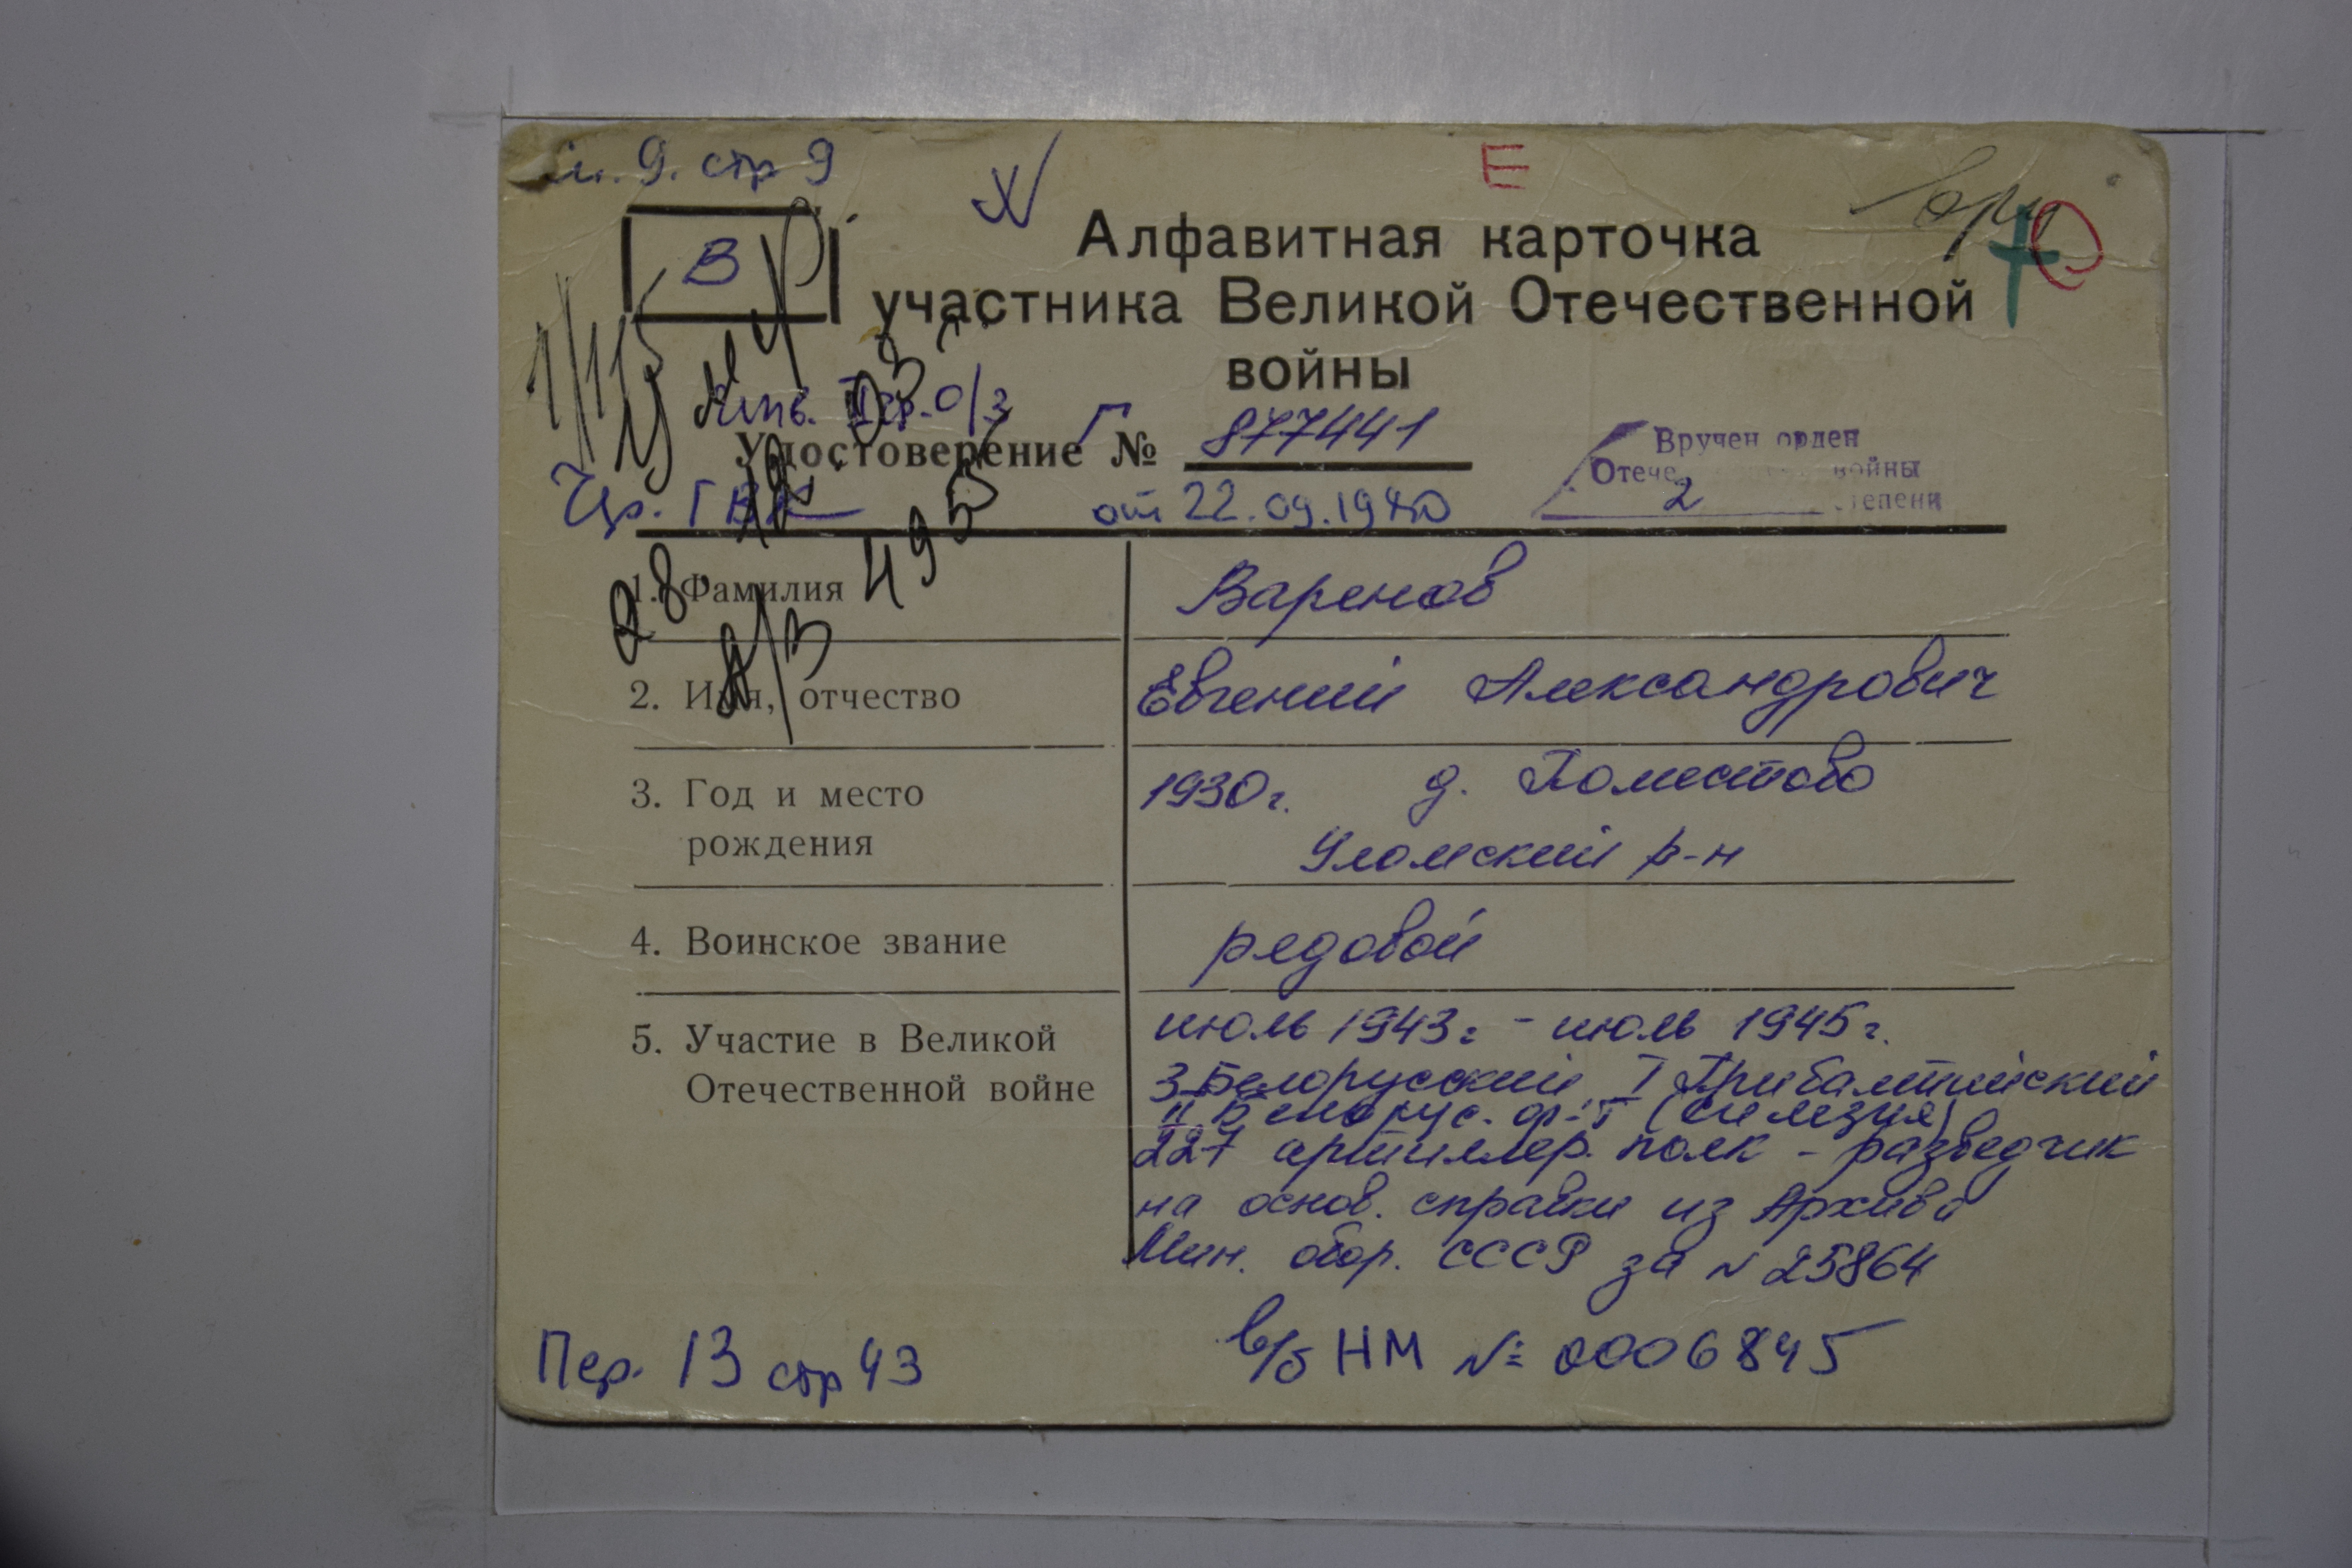 9. стр 9
Е
В
Алфавитная карточка
участника Великой Отечественной
войны
Удостоверение Г № 877441
ГВК от 22.09.1980
Вручен орден
Отече войны
2 степени
1. Фамилия Варенов
2. Имя, отчество Евгений Александрович
3. Год и место рождения 1930г. д. Поместово
Уломский р-н
4. Воинское звание рядовой
5. Участие в Великой Отечественной войне июль 1943г - июль 1945г.
3 Белорусский I Прибалтийский
II Белорус. ф-т (Силезия)
227 артиллер. полк - разведчик
на основ. справки из Архива
Мин. обор. СССР за N 25864
Пер. 13 стр 43
в/б НМ № 0006845